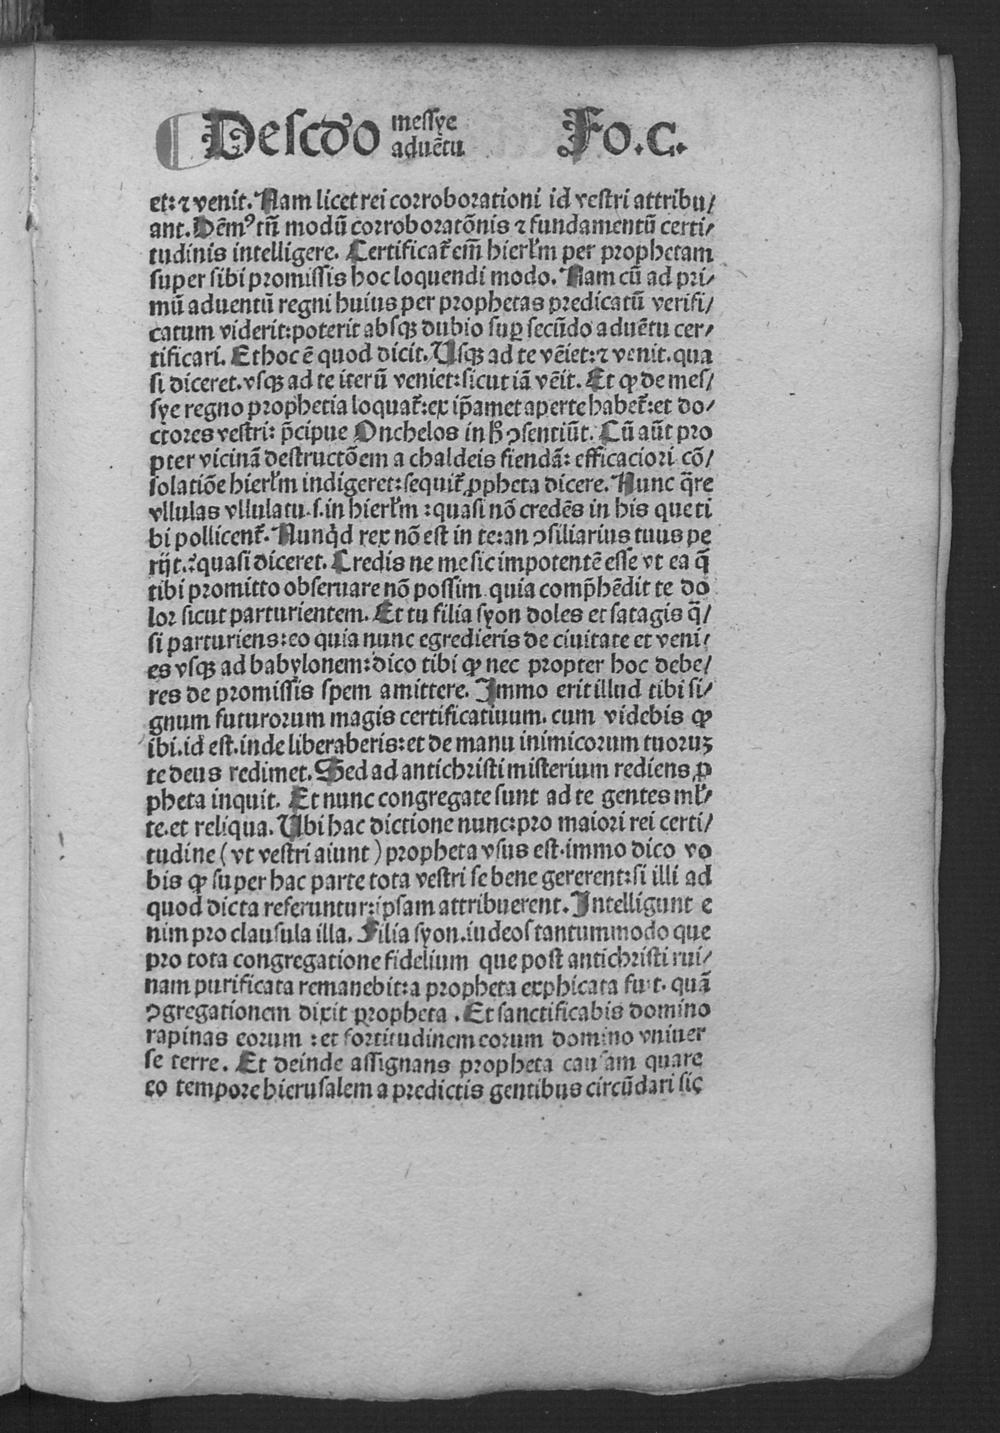 Desc⁊do messye aduētu Fo.C.
et: ⁊ venit. Nam licet rei corroborationi id vestri attribu/
ant. Dēmꝰ tn̄ modū corroboratōnis ⁊ fundamentū certi/
tudinis intelligere. Certificat᷑ em̄ hierl̄m per prophetam
super sibi promissis hoc loquendi modo. Nam cū ad pri/
mū aduentū regni huius per prophetas predicatū verifi/
catum viderit: poterit absqꝫ dubio suꝑ secūdo aduētu cer/
tificari. Et hoc ē quod dicit. Usqꝫ ad te vēiet: ⁊ venit. qua
si diceret. vsqꝫ ad te iterū veniet: sicut iā vēit. Et ꝙ de mes/
sye regno prophetia loquat᷑: ex ip̄amet aperte habet᷑: et do/
ctores vestri: p̄cipue Onchelos in h̄ ꝯsentiūt. Cū aūt pro
pter vicinā destructōem a chaldeis fiendā: efficaciori cō/
solatiōe hierl̄m indigeret: sequit᷑ ꝓpheta dicere. Nunc q̄re
vllulas vllulatu .s. in hierl̄m: quasi nō credēs in his que ti
bi pollicent᷑. Nunqd̄ rex nō est in te: an ꝯsiliarius tuus pe
rijt.? quasi diceret. Credis ne me sic impotentē esse vt ea q̄
tibi promitto obseruare nō possim. quia comp̄hēdit te do
lor sicut parturientem. Et tu filia syon doles et satagis q̄/
si parturiens: eo quia nunc egredieris de ciuitate et veni/
es vsqꝫ ad babylonem: dico tibi ꝙ nec propter hoc debe/
res de promissis spem amittere. Immo erit illud tibi si/
gnum futurorum magis certificatiuum. cum videbis ꝙ
ibi. id est. inde liberaberis: et de manu inimicorum tuoruꝫ
te deus redimet. Sed ad antichristi misterium rediens ꝓ
pheta inquit. Et nunc congregate sunt ad te gentes ml̄/
te. et reliqua. Ubi hac dictione nunc: pro maiori rei certi/
tudine (vt vestri aiunt) propheta vsus est. immo dico vo
bis ꝙ super hac parte tota vestri se bene gererent: si illi ad
quod dicta referuntur: ipsam attribuerent. Intelligunt e
nim pro clausula illa. Filia syon. iudeos tantummodo que
pro tota congregatione fidelium que post antichristi rui/
nam purificata remanebit: a propheta explicata fuit. quā
ꝯgregationem dixit propheta. Et sanctificabis domino
rapinas eorum: et fortitudinem eorum domino vniuer
se terre. Et deinde assignans propheta causam quare
eo tempore hierusalem a predictis gentibus circūdari sic